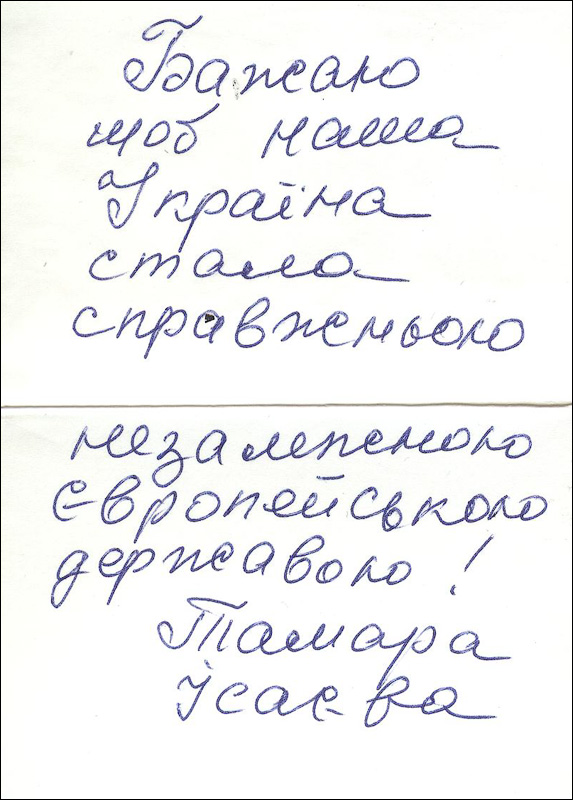 Бажаю
щоб наша
Україна
стала
справжньою
незалежною
Європейською
державою!
Тамара
Ісаєва